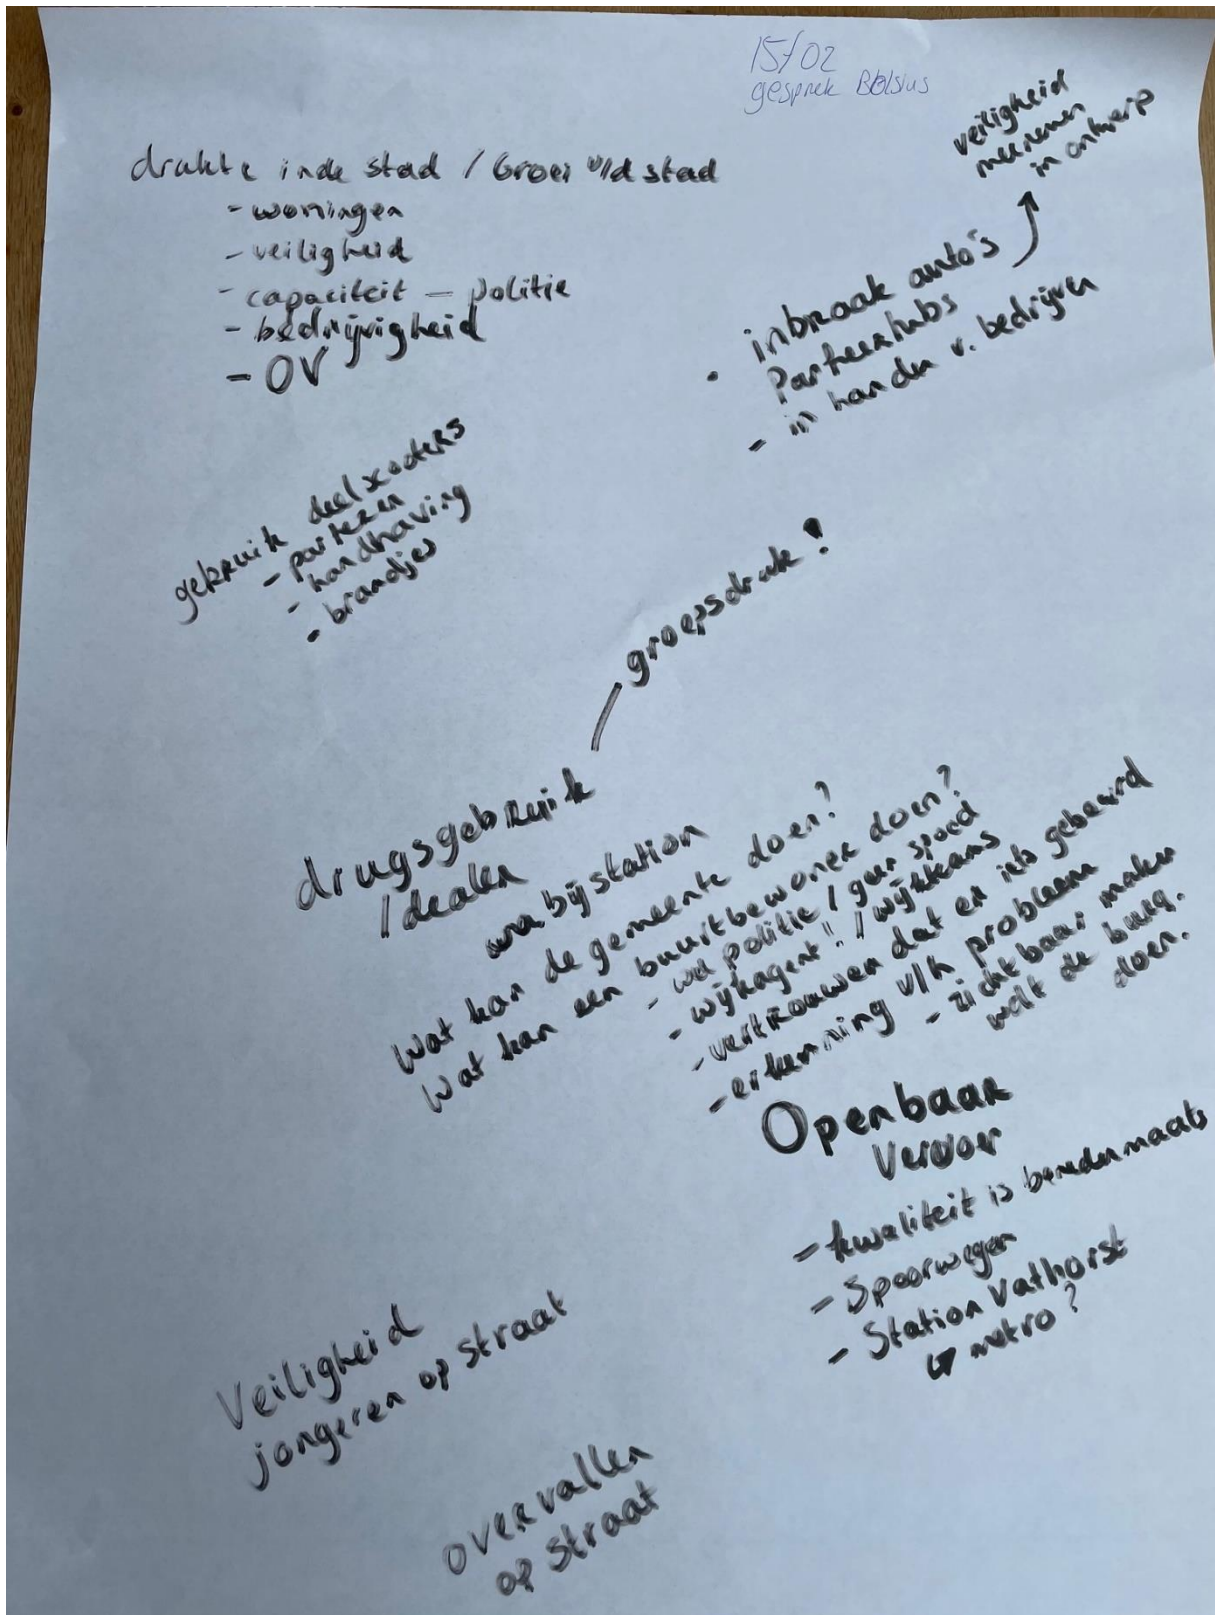 15/02
gesprek Bolsius
drukte in de stad / Groei v/d stad
- woningen
- veiligheid
- capaciteit - politie
- bedrijvigheid
- OV
veiligheid
meenemen
in ontwerp
• inbraak auto's
Parkeerhubs
- in handen v. bedrijven
gebruik deelscooters
- parkeren
- handhaving
- brandjes
groepsdruk!
drugsgebruik
/dealen
bij station
Wat kan de gemeente doen?
Wat kan een buurtbewoner doen?
- wel politie / geen spoed
- wijkagent!! / wijkteams
- vertrouwen dat er iets gebeurd
- erkenning v/h probleem
- zichtbaar maken
wat de burg.
doen.
Openbaar
Vervoer
- kwaliteit is benedenmaats
- Spoorwegen
- Station Vathorst
↳ metro?
Veiligheid
jongeren op straat
overvallen
op straat